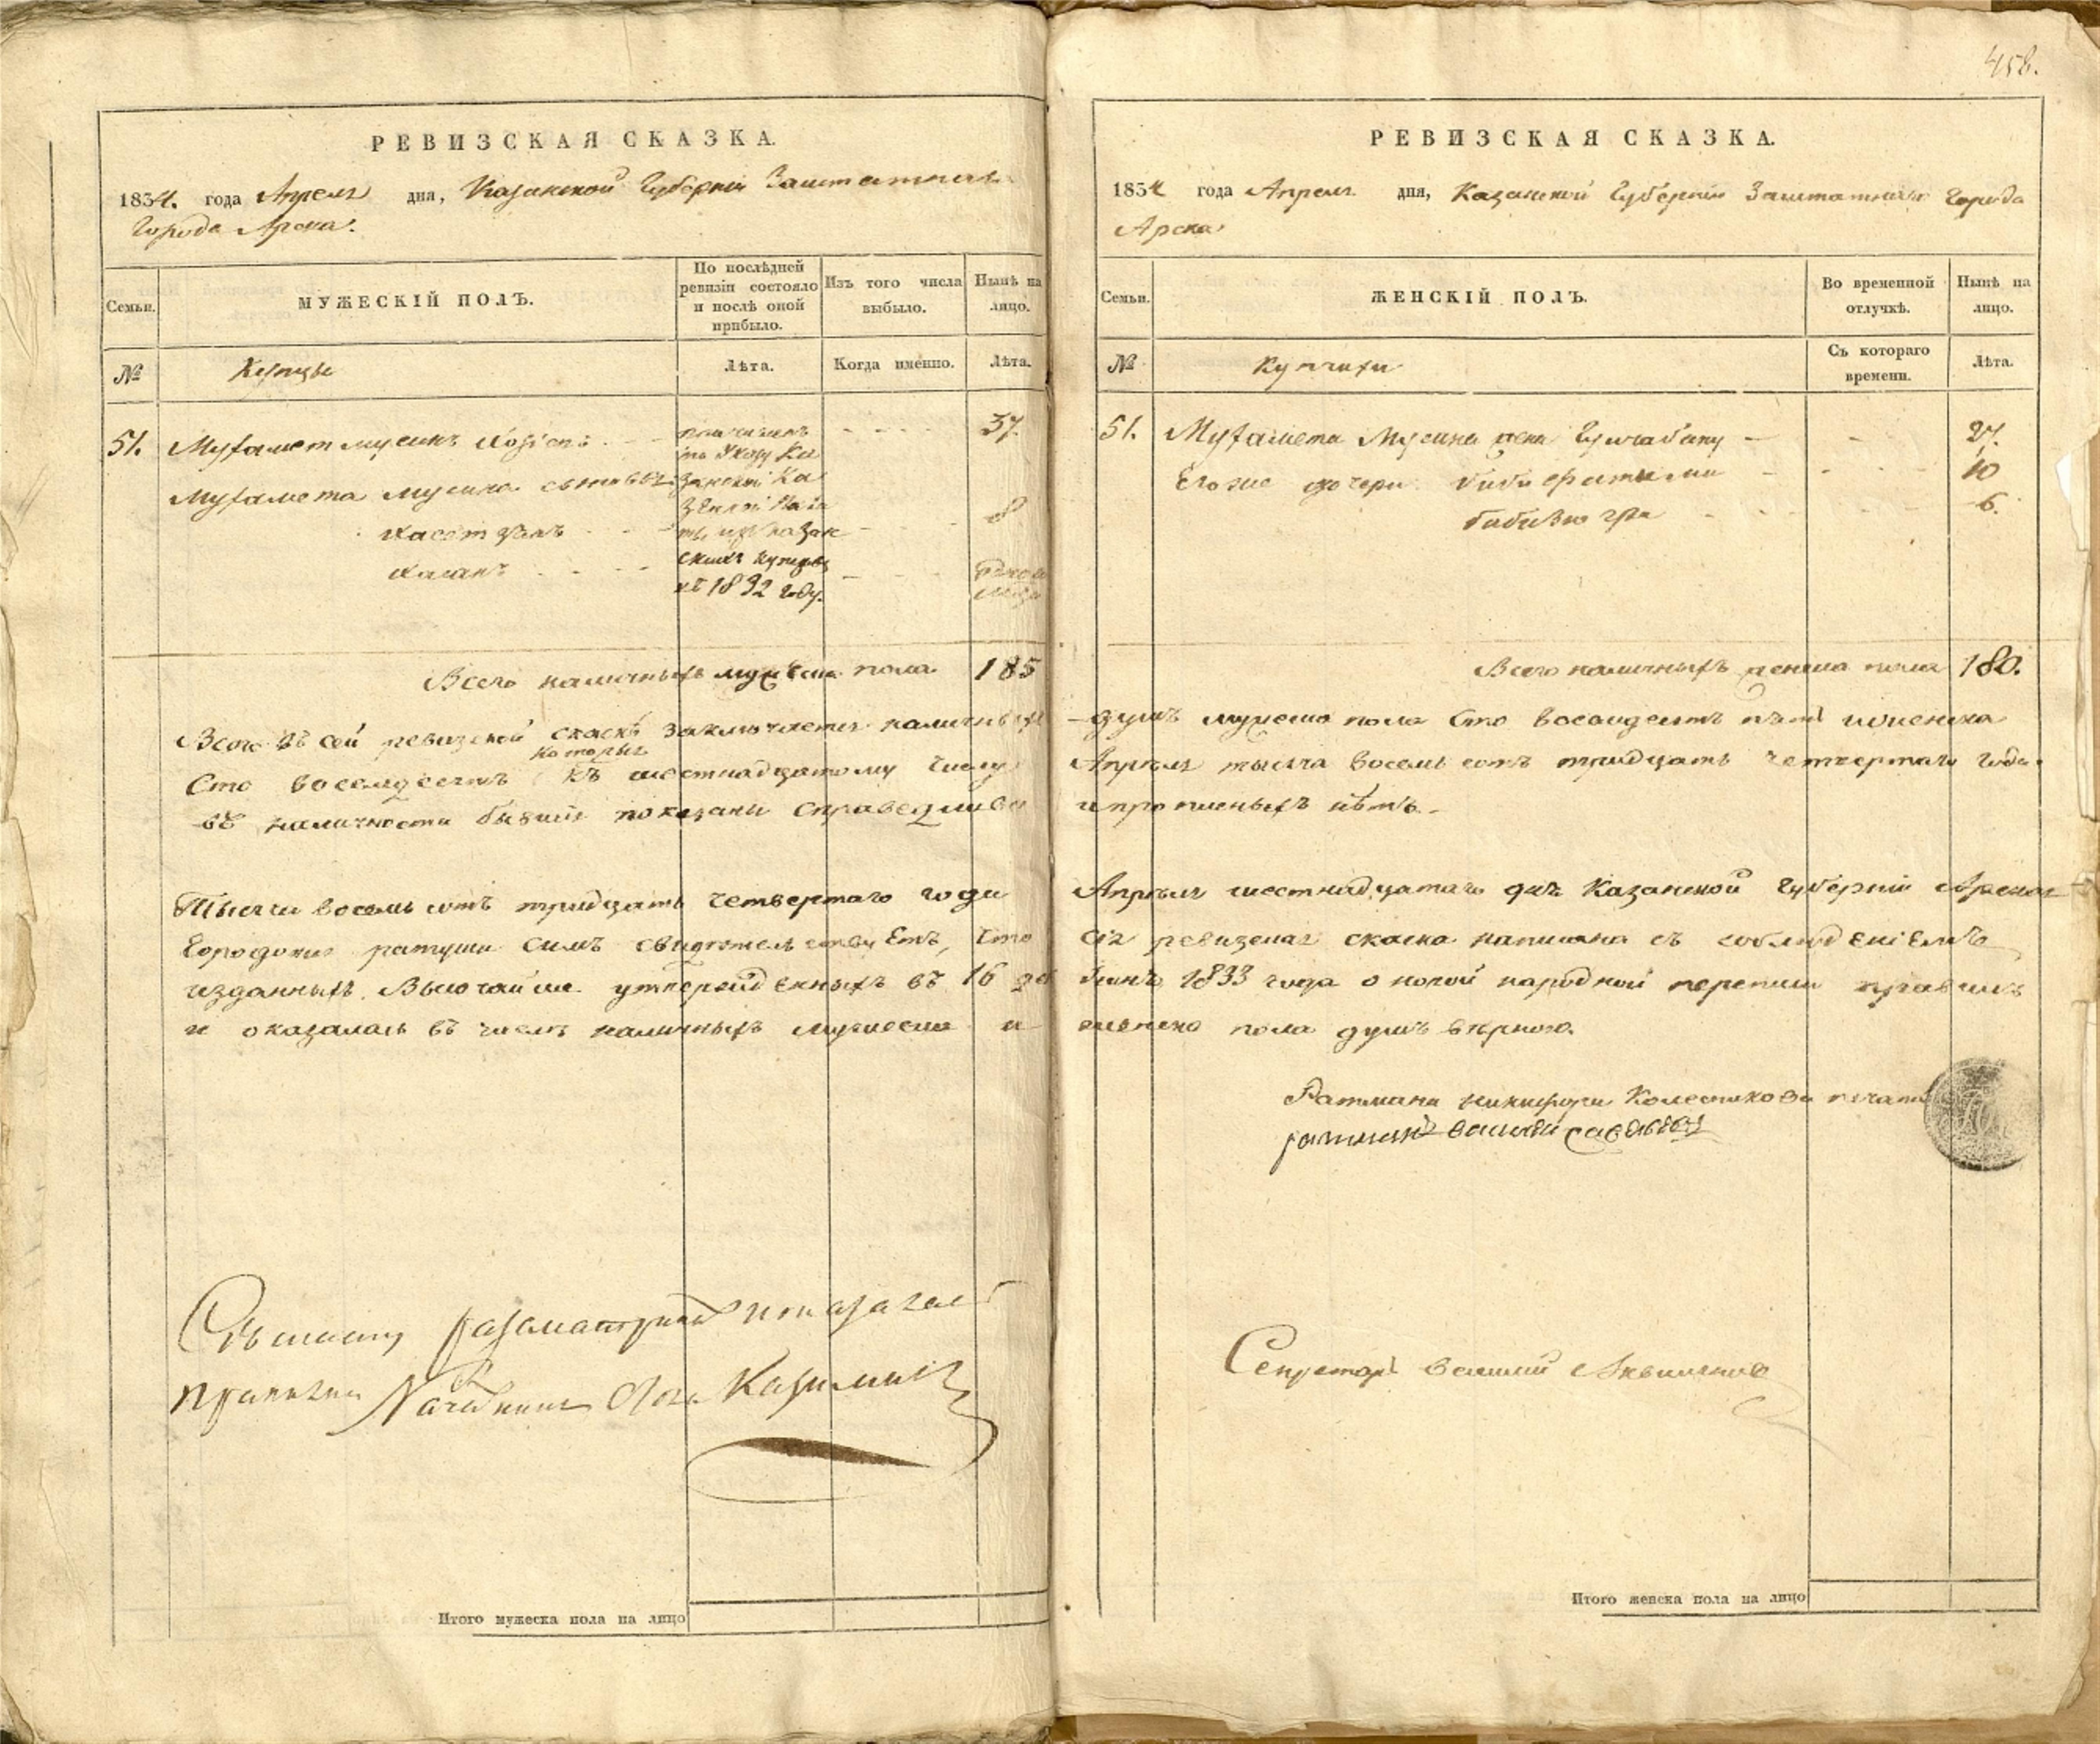 458.
РЕВИЗСКАЯ СКАЗКА.
1834. года Апреля дня, Казанской Губернiи Заштатнаго
Города Арска.
Семьи.
МУЖЕСКІЙ ПОЛЪ.
По послѣдней ревизіи состояло и послѣ оной прибыло.
Изъ того числа выбыло.
Нынѣ на лицо.
№
Купцы
Лѣта.
Когда именно.
Лѣта.
51. Мухамет Мусинъ 37.
Мухамета Мусина сыновья
8
Хасанъ
причисленъ
по Указу Ка
занской Ка
зенной Пала
ты изъ Казан
скихъ купцовъ
въ 1832 году.
Всего наличныхъ мужеска пола 185
Всего въ сей ревизской сказкѣ заключается наличныхъ
которыя
Сто восемдесятъ къ шестнадцатому числу
въ наличности бывшiя показаны справедливо
Тысяча восемь сотъ тридцать четвертаго года
Городская ратуша симъ свидѣтельствуетъ, что
изданныхъ Высочайше утвержденныхъ въ 16 де
и оказалась въ числѣ наличныхъ мужеска и
Казиминъ
Итого мужеска пола на лицо
РЕВИЗСКАЯ СКАЗКА.
1834 года Апреля дня, Казанской Губернiи Заштатнаго Города
Арска
Семьи.
ЖЕНСКІЙ ПОЛЪ.
Во временной отлучкѣ.
Нынѣ на лицо.
№
Купчихи
Съ котораго времени.
Лѣта.
51. Мухамета Мусина жена 27.
Его же дочери биби фатыма 10
6.
Всего наличныхъ женска пола 180.
душъ мужеска пола Сто восемдесятъ пять и женска
Апрѣля тысяча восемь сотъ тридцать четвертаго года
и прописныхъ нѣтъ.
Апрѣля шестнадцатаго дня Казанской Губернiи Арская
сiя ревизская сказка написана съ соблюденiемъ
1833 года о новой народной переписи правилъ
женска пола душъ вѣрною.
Ратмана Никифора Колесникова печать
ратманъ Василей Савельевъ
Секретарь Василий
Итого женска пола на лицо